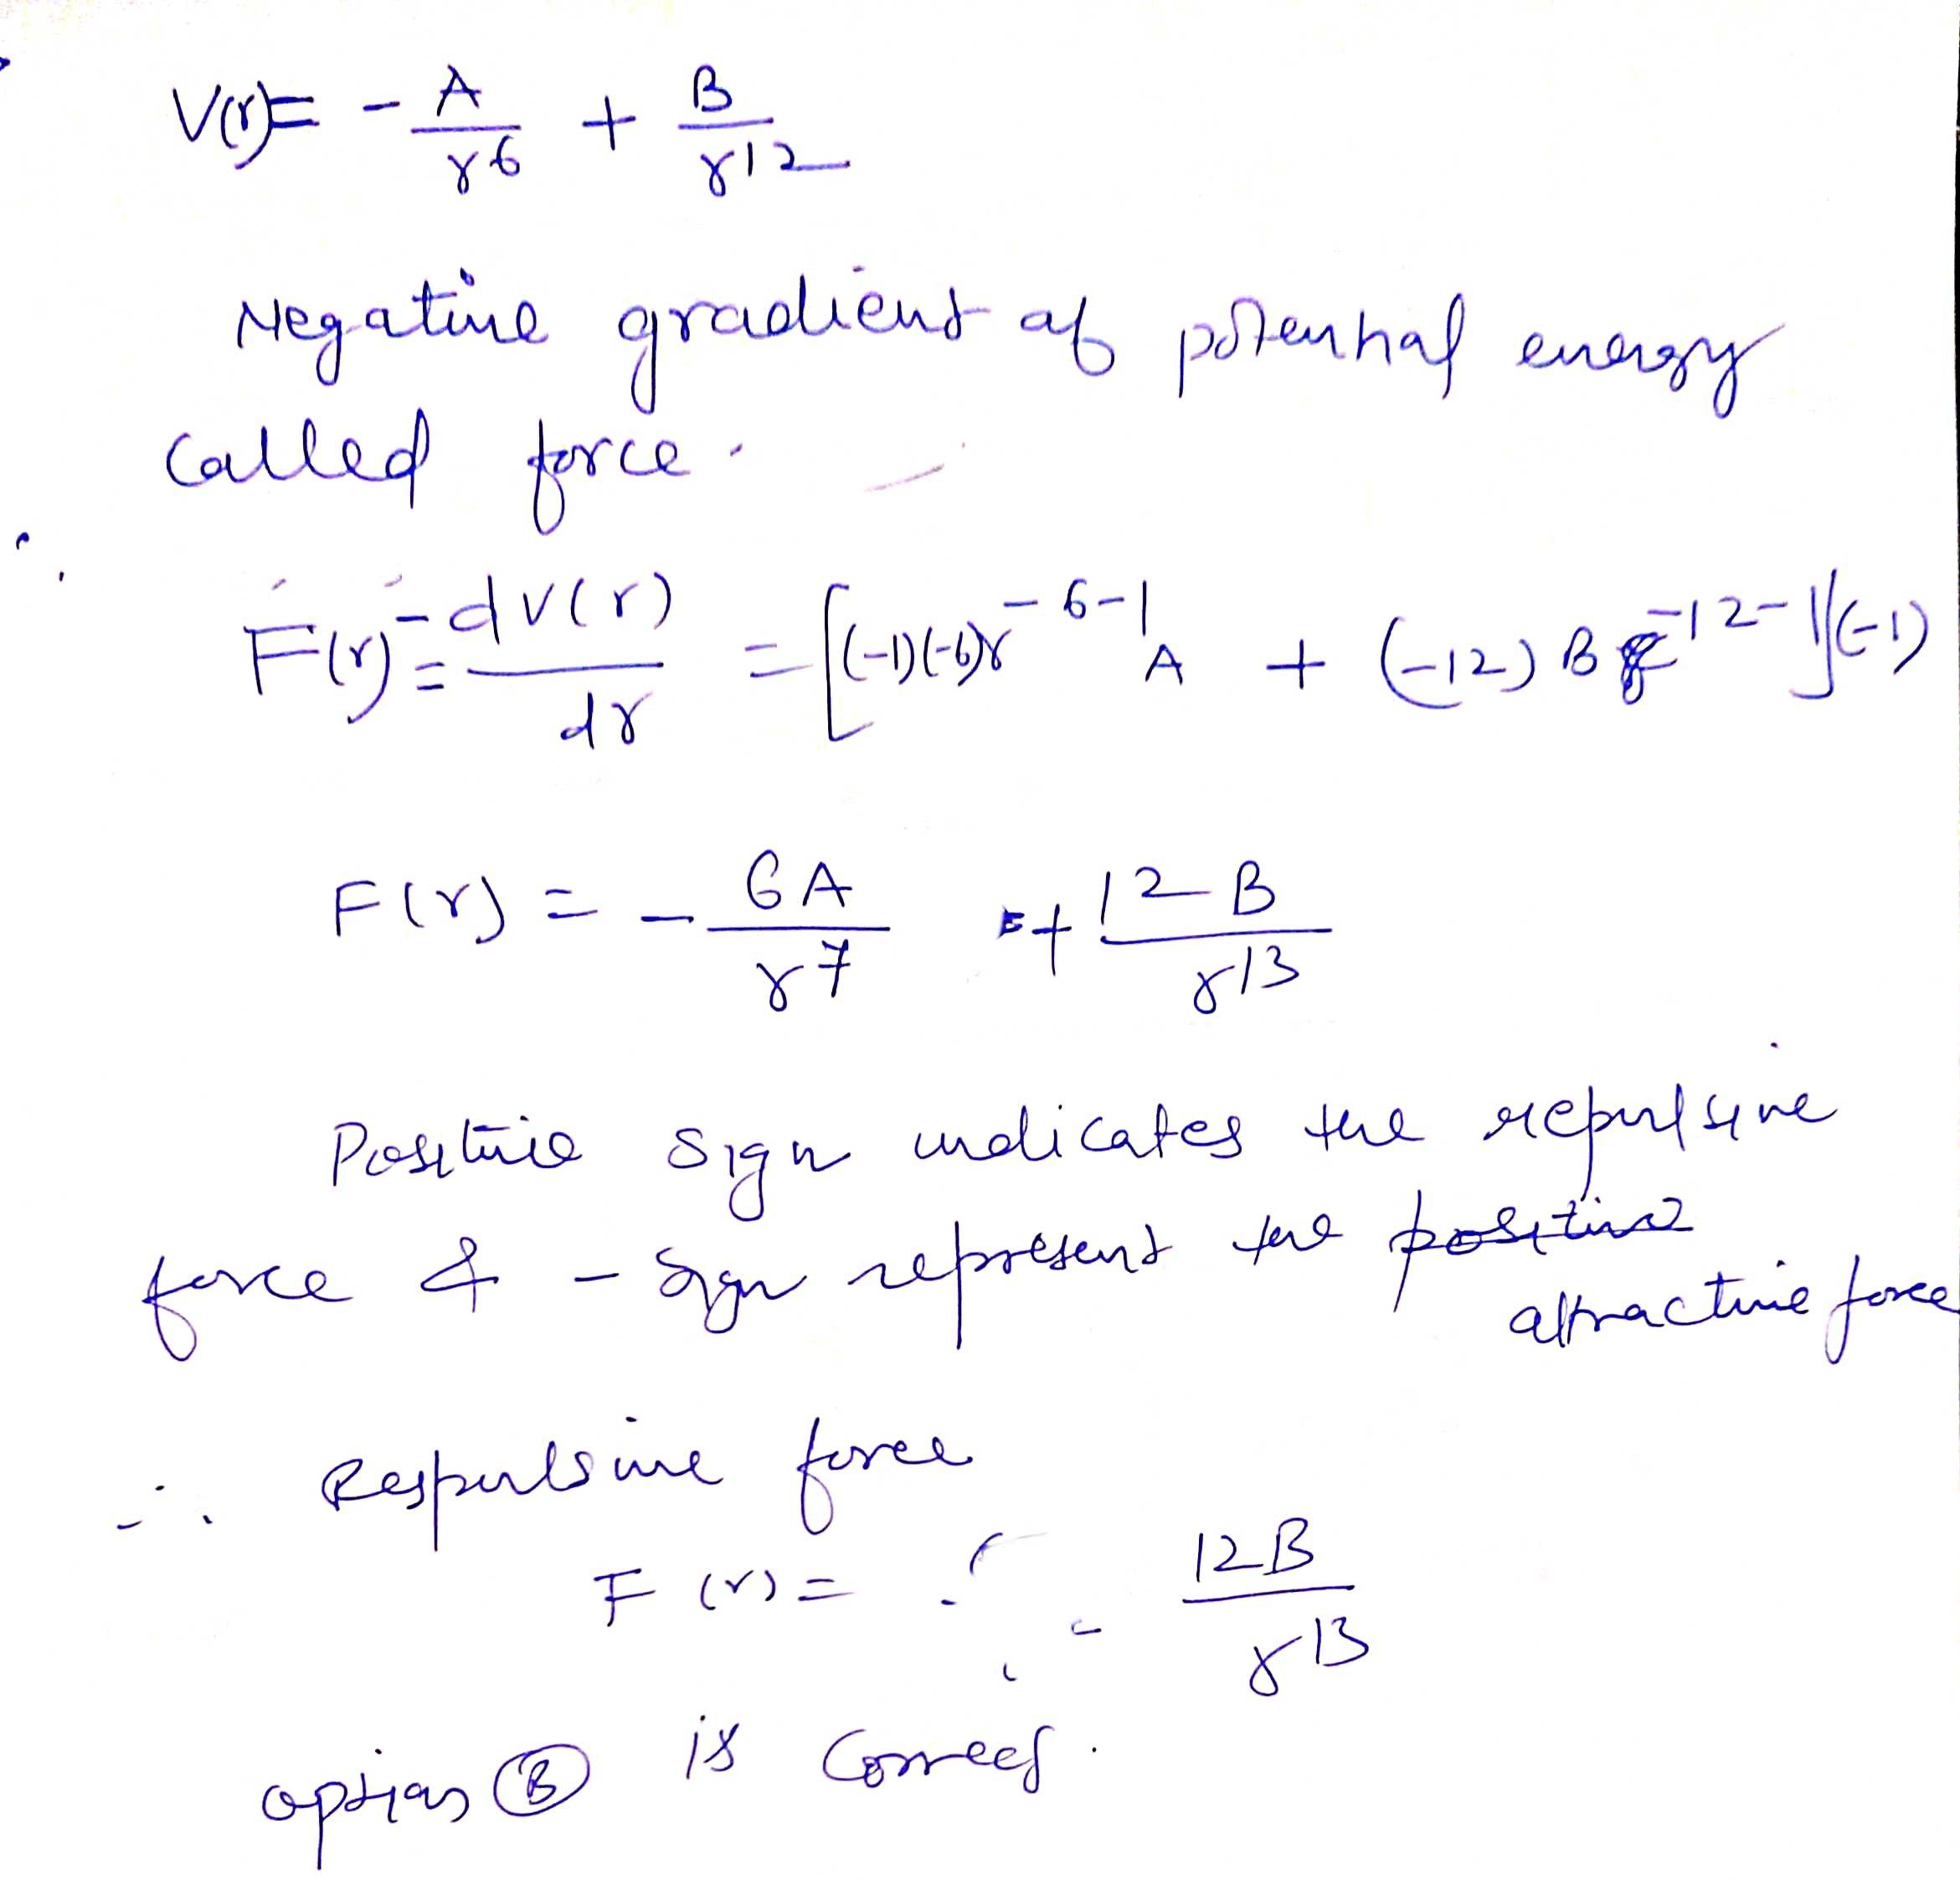 V(r)= - A/r6 + B/r12
Negative gradient of potential energy
called force.
F(r) = -dV(r)/dr = [(-1)(-6)r^-6-1 A + (-12) B r^-12-1](-1)
F(r) = - 6A/r7 + 12B/r13
Positive sign indicates the repulsive
force & - sign represent the positive
attractive force
∴ Respulsive force
F (r) = 12B/r13
option Ⓑ is correct.